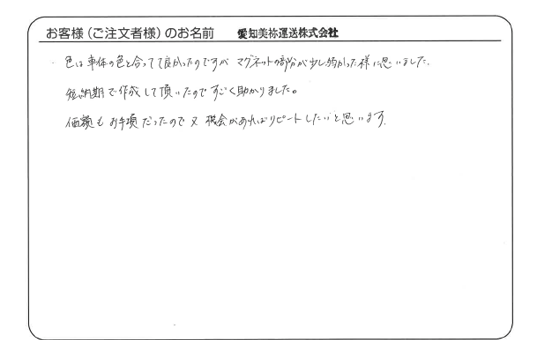 お客様（ご注文者様）のお名前 愛知美祢運送株式会社
色は車体の色と合ってて良かったのですが マグネットの部分が少し弱かった様に思いました。
短納期で作成して頂いたのですごく助かりました。
価額もお手頃だったので又機会があればリピートしたいと思います。